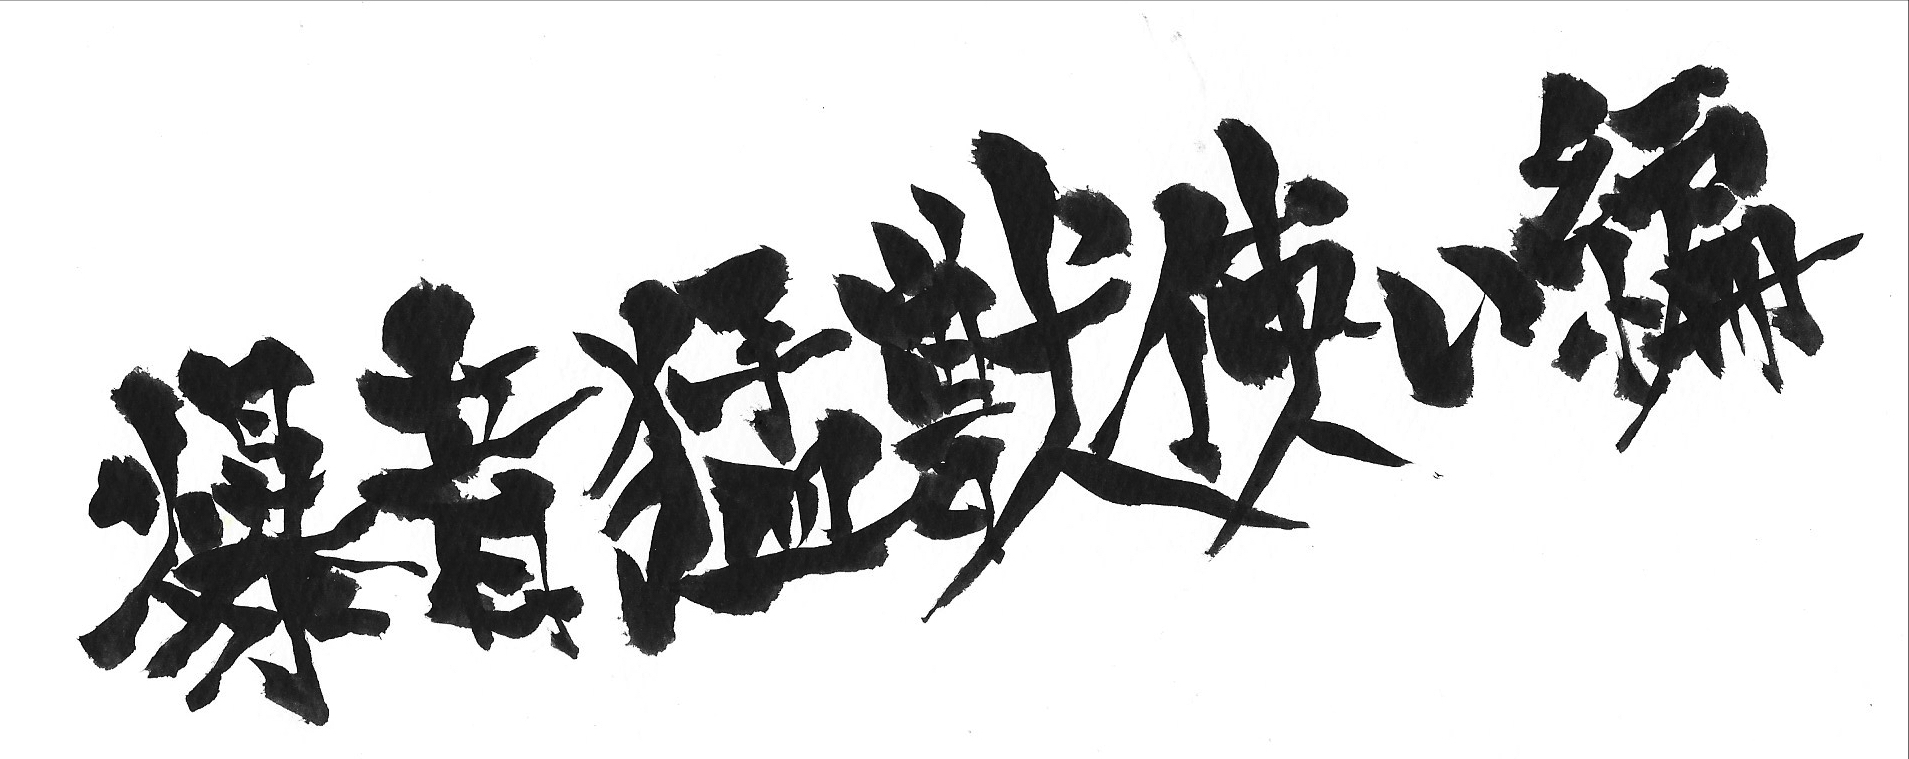 爆者猛獣使い編